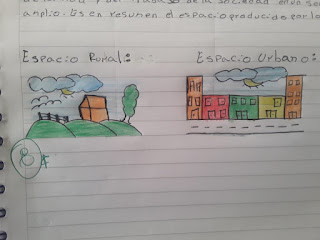 trabajo de la sociedad en un
amplio. Es en resumen el espacio producido por
Espacio Rural:
Espacio Urbano:
8